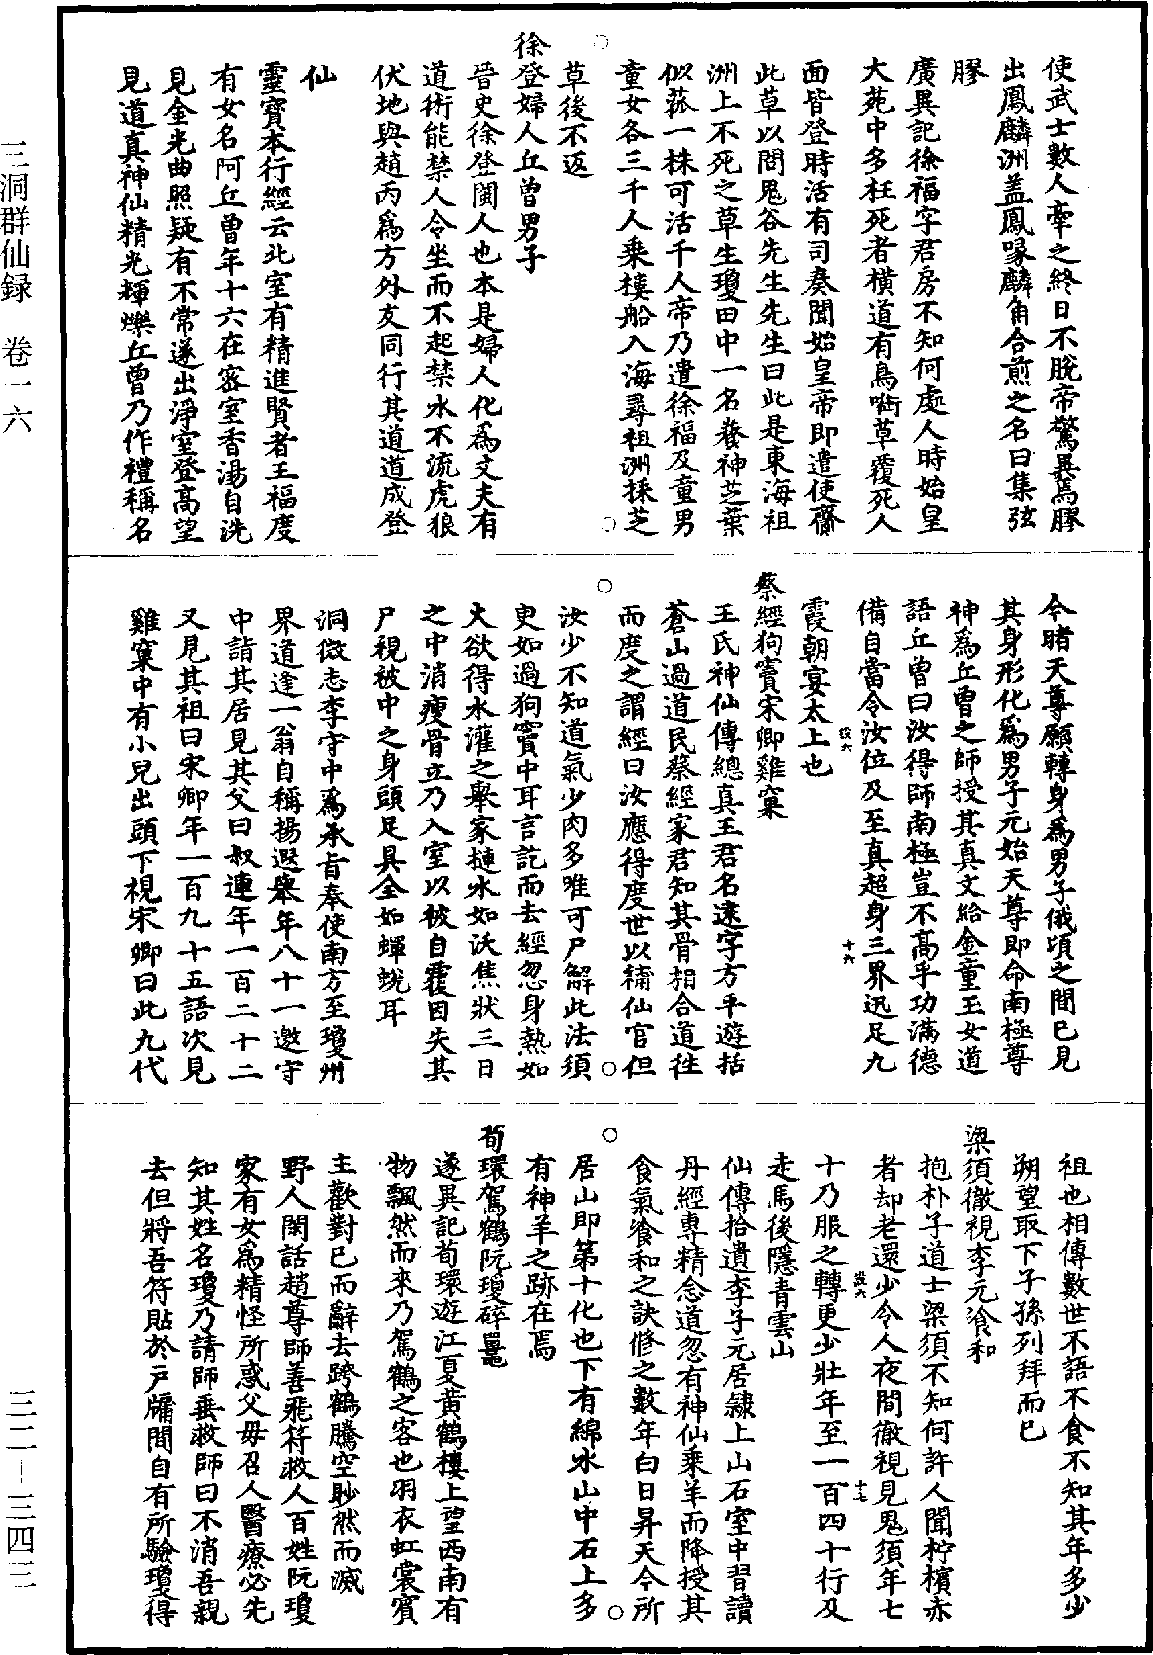 使武士數人牽之終日不脫帝驚異焉膠
出鳳麟洲蓋鳳喙麟角合煎之名曰集弦
膠
廣異記徐福字君房不知何處人時始皇
大苑中多枉死者橫道有鳥啣草覆死人
面皆登時活有司奏聞始皇帝即遣使齎
此草以問鬼谷先生先生曰此是東海祖
洲上不死之草生瓊田中一名養神芝葉
似菰一株可活千人帝乃遣徐福及童男
童女各三千人乘樓船入海尋祖洲採芝
草後不返
徐登婦人丘曾男子
晉史徐登閩人也本是婦人化為丈夫有
道術能禁人令坐而不起禁水不流虎狼
伏地與趙丙為方外友同行其道道成登
仙
靈寶本行經云北室有精進賢者王福度
有女名阿丘曾年十六在密室香湯自洗
見金光曲照疑有不常遂出淨室登高望
見道真神仙精光輝爍丘曾乃作禮稱名
今睹天尊願轉身為男子俄頃之間已見
其身形化為男子元始天尊即命南極尊
神為丘曾之師授其真文給金童玉女道
語丘曾曰汝得師南極豈不高乎功滿德
備自當令汝位及至真超身三界迅足九
霞朝宴太上也
蔡經狗竇宋卿雞窠
王氏神仙傳總真王君名遠字方平遊括
蒼山過道民蔡經家君知其骨相合道往
而度之謂經曰汝應得度世以補仙官但
汝少不知道氣少肉多唯可尸解此法須
臾如過狗竇中耳言訖而去經忽身熱如
火欲得水灌之舉家摙水如沃焦狀三日
之中消瘦骨立乃入室以被自覆因失其
尸視被中之身頭足具全如蟬蛻耳
洞微志李守中為承旨奉使南方至瓊州
界道逢一翁自稱揚遐舉年八十一邀守
中詣其居見其父曰叔連年一百二十二
又見其祖曰宋卿年一百九十五語次見
雞窠中有小兒出頭下視宋卿曰此九代
祖也相傳數世不語不食不知其年多少
朔望取下子孫列拜而已
梁須徹視李元飡和
抱朴子道士梁須不知何許人聞檸檳赤
者却老還少令人夜間徹視見鬼須年七
十乃服之轉更少壯年至一百四十行及
走馬後隱青雲山
仙傳拾遺李子元居隸上山石室中習讀
丹經專精念道忽有神仙乘羊而降授其
食氣飡和之訣修之數年白日昇天今所
居山即第十化也下有綿水山中石上多
有神羊之跡在焉
荀環駕鶴阮瓊碎鼉
遂異記荀環遊江夏黃鶴樓上望西南有
物飄然而來乃駕鶴之客也羽衣虹裳賓
主歡對已而辭去跨鶴騰空眇然而滅
野人閑話趙尊師善飛符救人百姓阮瓊
家有女為精怪所惑父母召人醫療必先
知其姓名瓊乃請師垂救師曰不消吾親
去但將吾符貼於戶牖間自有所驗瓊得
三洞群仙録 卷一六
三二—三四三